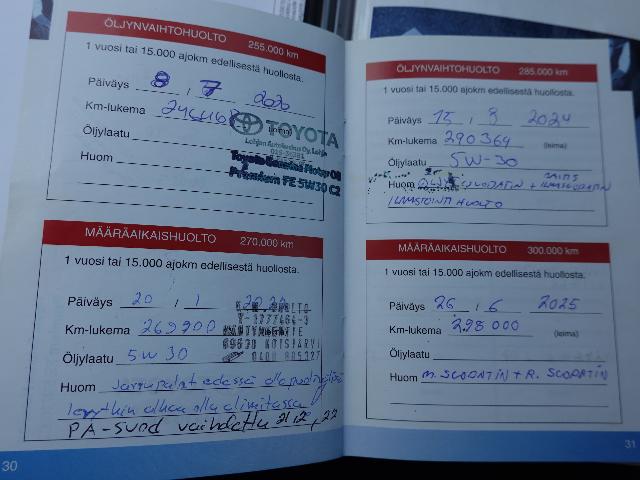 ÖLJYNVAIHTOHUOLTO 255.000 km
1 vuosi tai 15.000 ajokm edellisestä huollosta.
Päiväys 8 / 7 2020
Km-lukema
TOYOTA
Öljylaatu
Huom
Toyota Genuine Motor Oil
Premium FE 5W30 C2
MÄÄRÄAIKAISHUOLTO 270.000 km
1 vuosi tai 15.000 ajokm edellisestä huollosta.
Päiväys 20 / 1
Km-lukema 269900
Öljylaatu 5W30
Huom Jarrupalat edessä
PA-suod vaihdettu
30
ÖLJYNVAIHTOHUOLTO 285.000 km
1 vuosi tai 15.000 ajokm edellisestä huollosta.
Päiväys 15 / 8 2024
Km-lukema 290364 (leima)
Öljylaatu 5W-30
Huom SUODATIN + ILMASUODATIN
ILMASTOINTI HUOLTO
MÄÄRÄAIKAISHUOLTO 300.000 km
1 vuosi tai 15.000 ajokm edellisestä huollosta.
Päiväys 26 / 6 2025
Km-lukema 298000 (leima)
Öljylaatu
Huom M. SUODATIN + R. SUODATIN
31